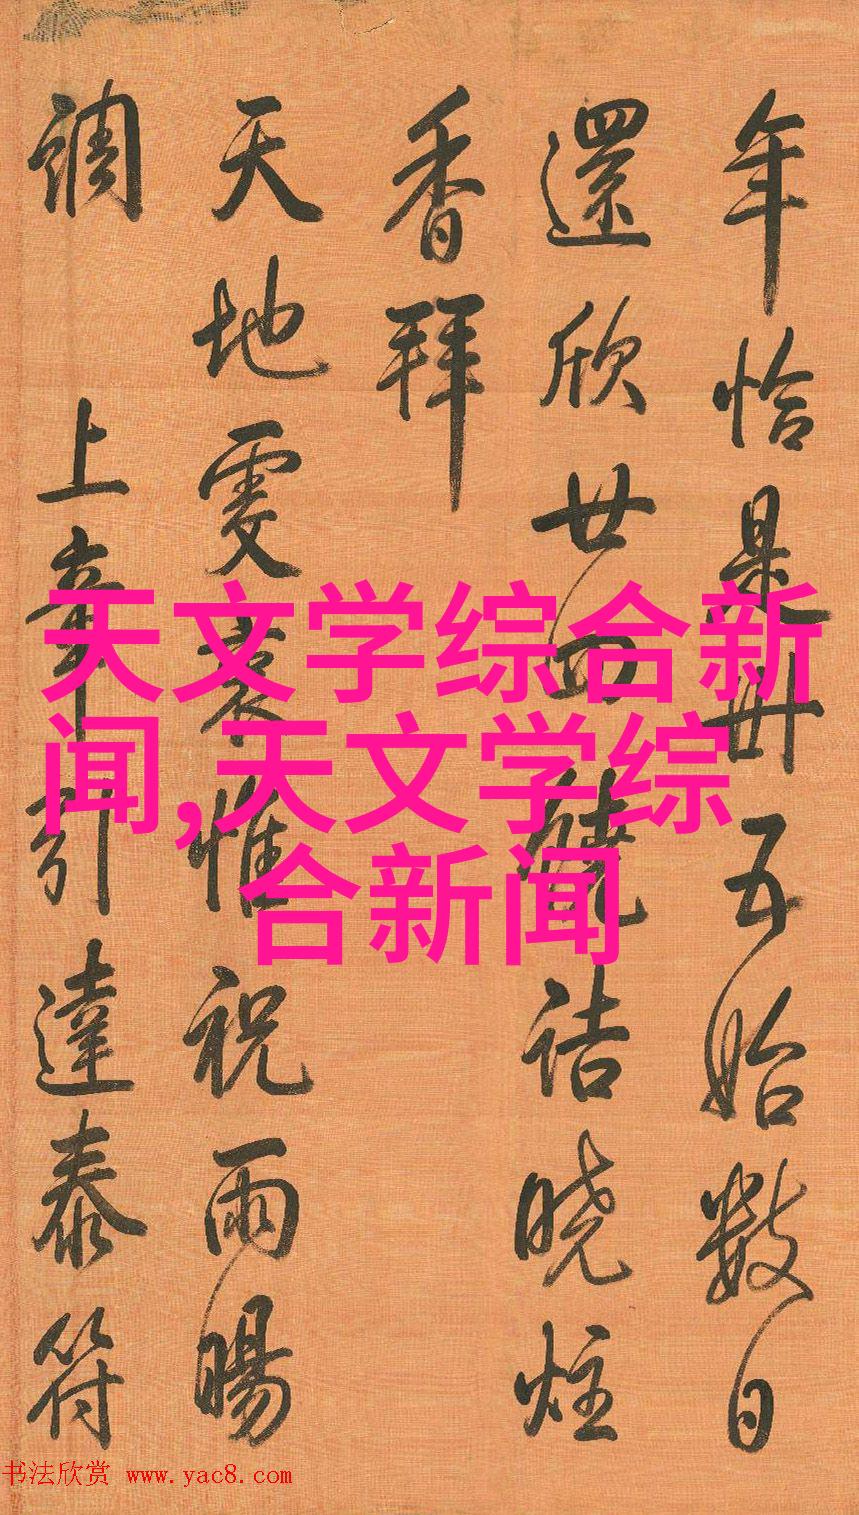 年恰是卅五始數日
還欣廿四
詰曉炷
香拜
天地雯袁惟祝雨暘
調
上辛引達泰符
天文学综合新
闻,天文学综
合新闻
书法欣赏 www.yac8.com